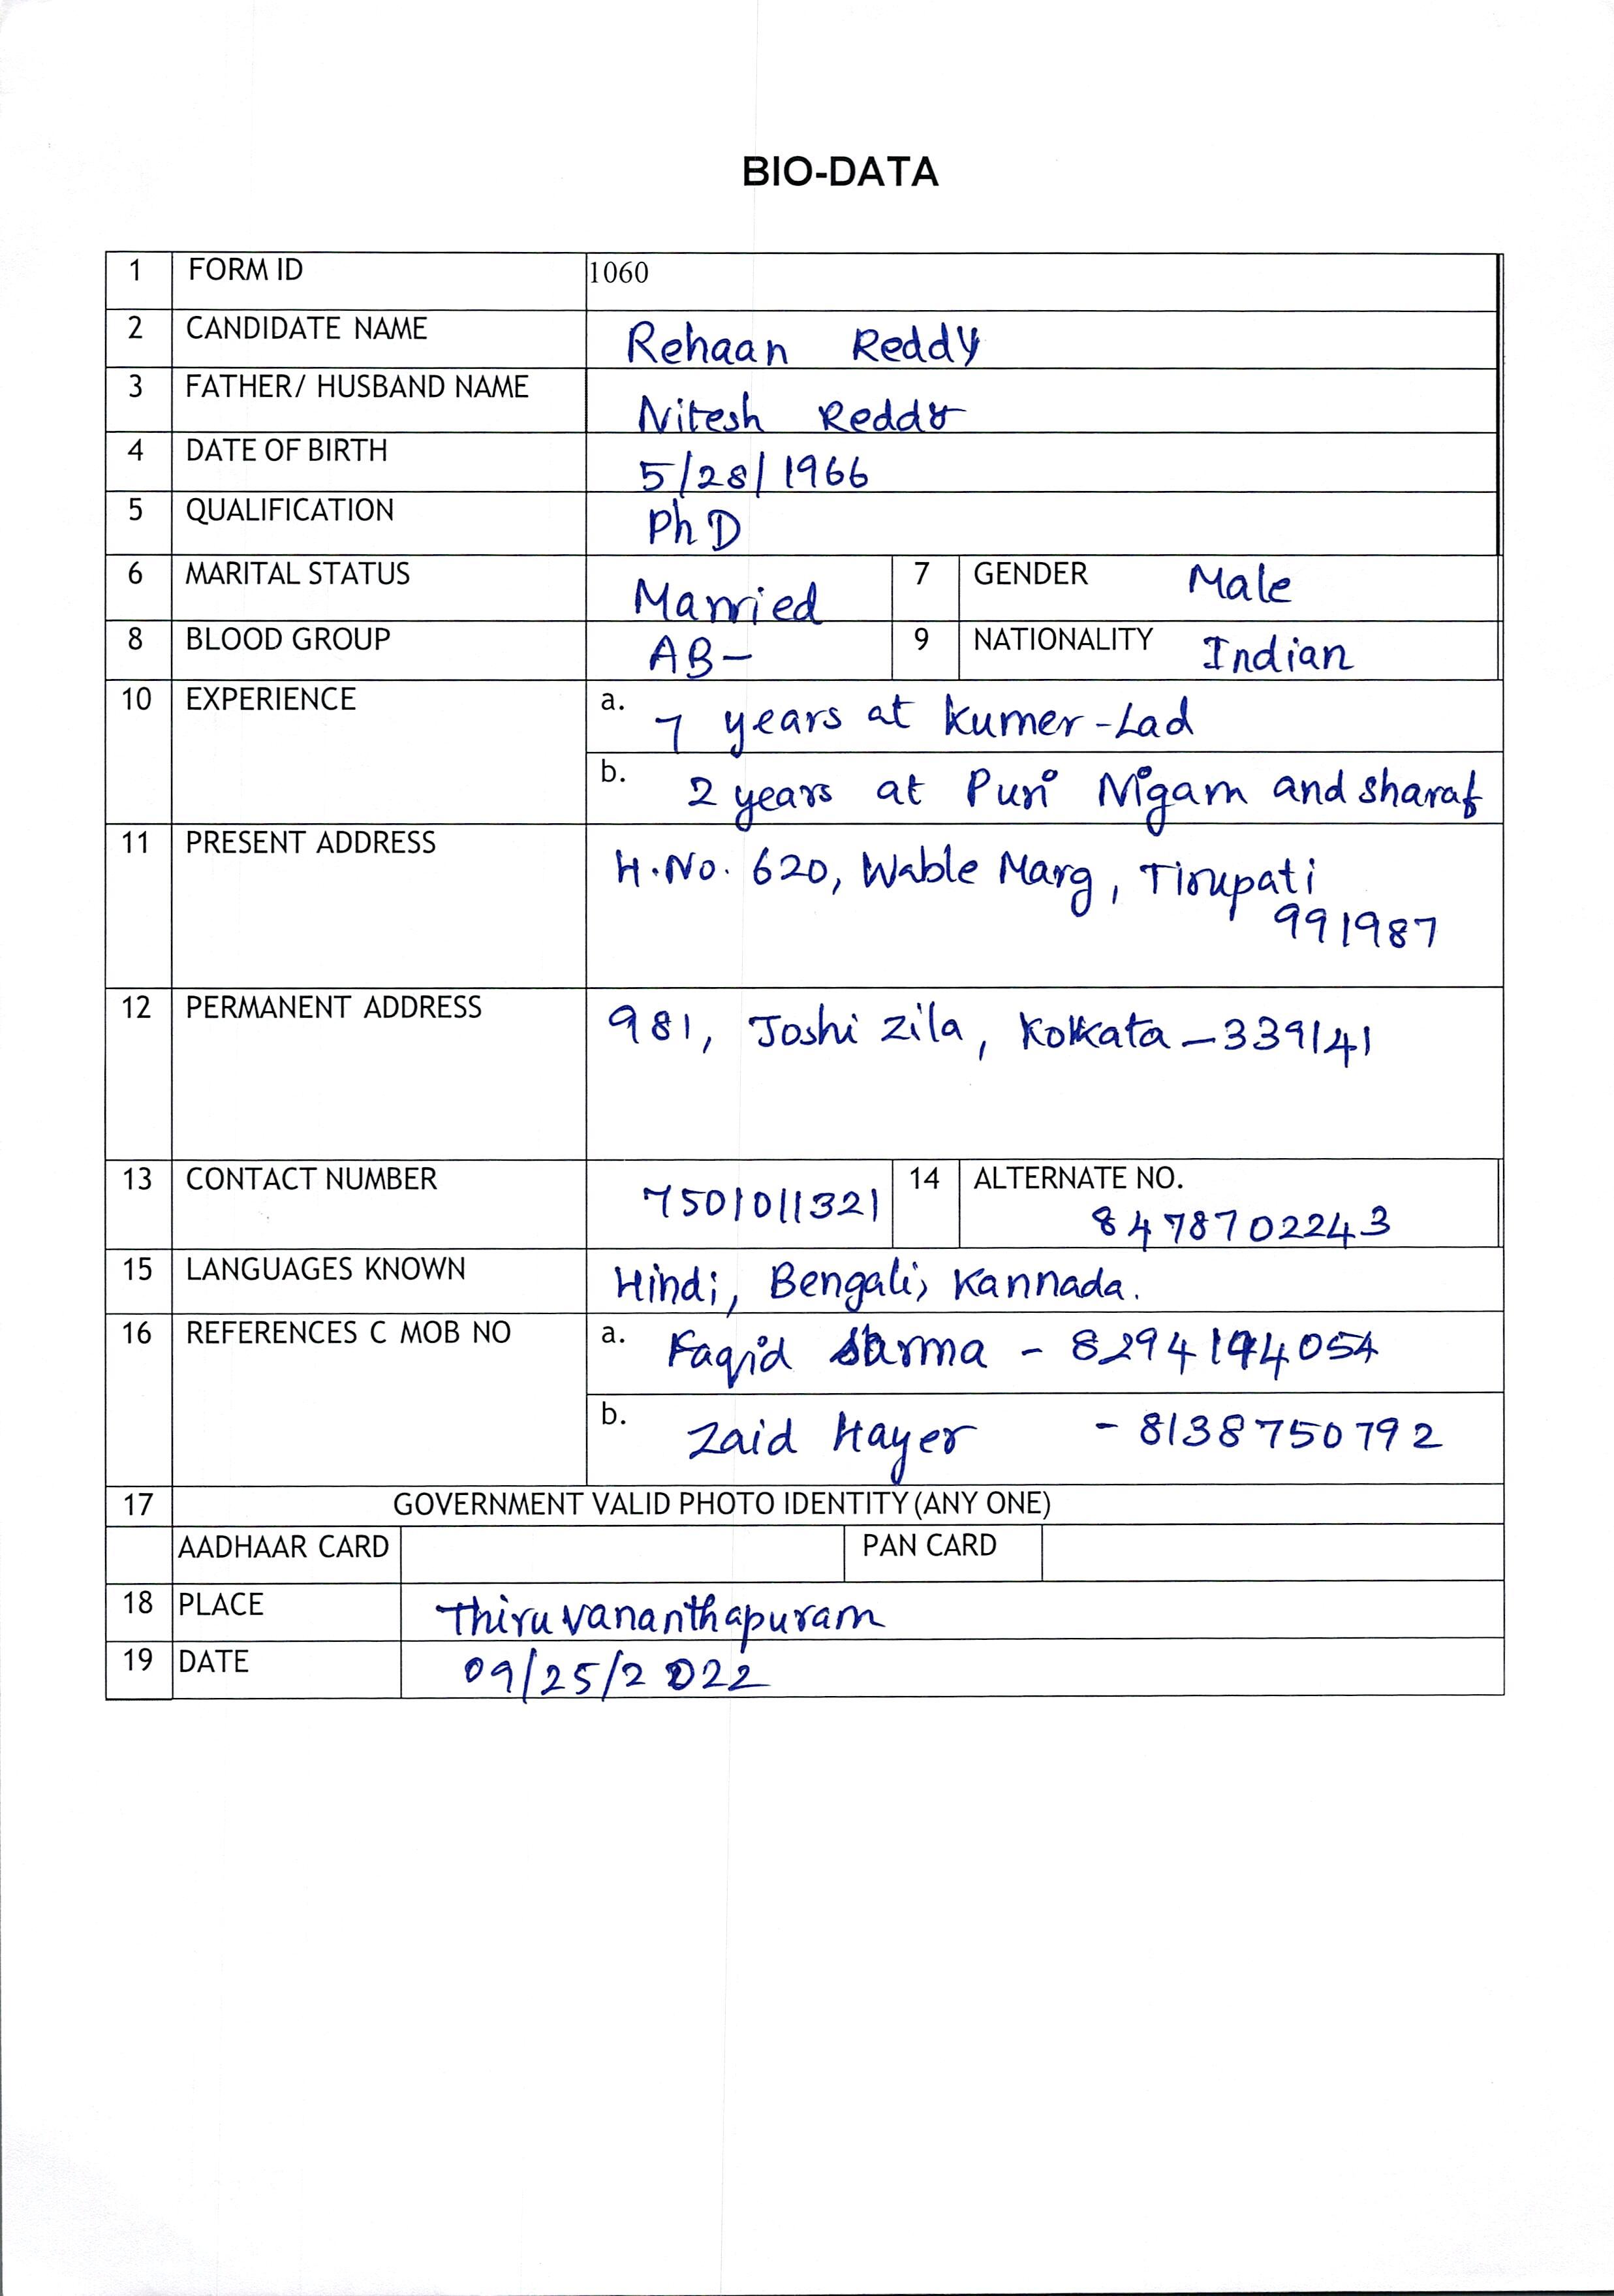 BIO-DATA
1 FORM ID 1060
2 CANDIDATE NAME Rehaan Reddy
3 FATHER/ HUSBAND NAME Nitesh Reddy
4 DATE OF BIRTH 5/28/1966
5 QUALIFICATION PhD
6 MARITAL STATUS Married 7 GENDER Male
8 BLOOD GROUP AB- 9 NATIONALITY Indian
10 EXPERIENCE a. 7 years at Kumer-Lad
b. 2 years at Puri Nigam and Sharaf
11 PRESENT ADDRESS H.No. 620, Wable Marg, Tirupati
991987
12 PERMANENT ADDRESS 981, Joshi Zila, Kolkata-339141
13 CONTACT NUMBER 7501011321 14 ALTERNATE NO.
8478702243
15 LANGUAGES KNOWN Hindi, Bengali, Kannada.
16 REFERENCES C MOB NO a. Faqid Sarma -
b. Zaid Hayer - 8138750792
17 GOVERNMENT VALID PHOTO IDENTITY (ANY ONE)
AADHAAR CARD PAN CARD
18 PLACE Thiruvananthapuram
19 DATE 09/25/2022